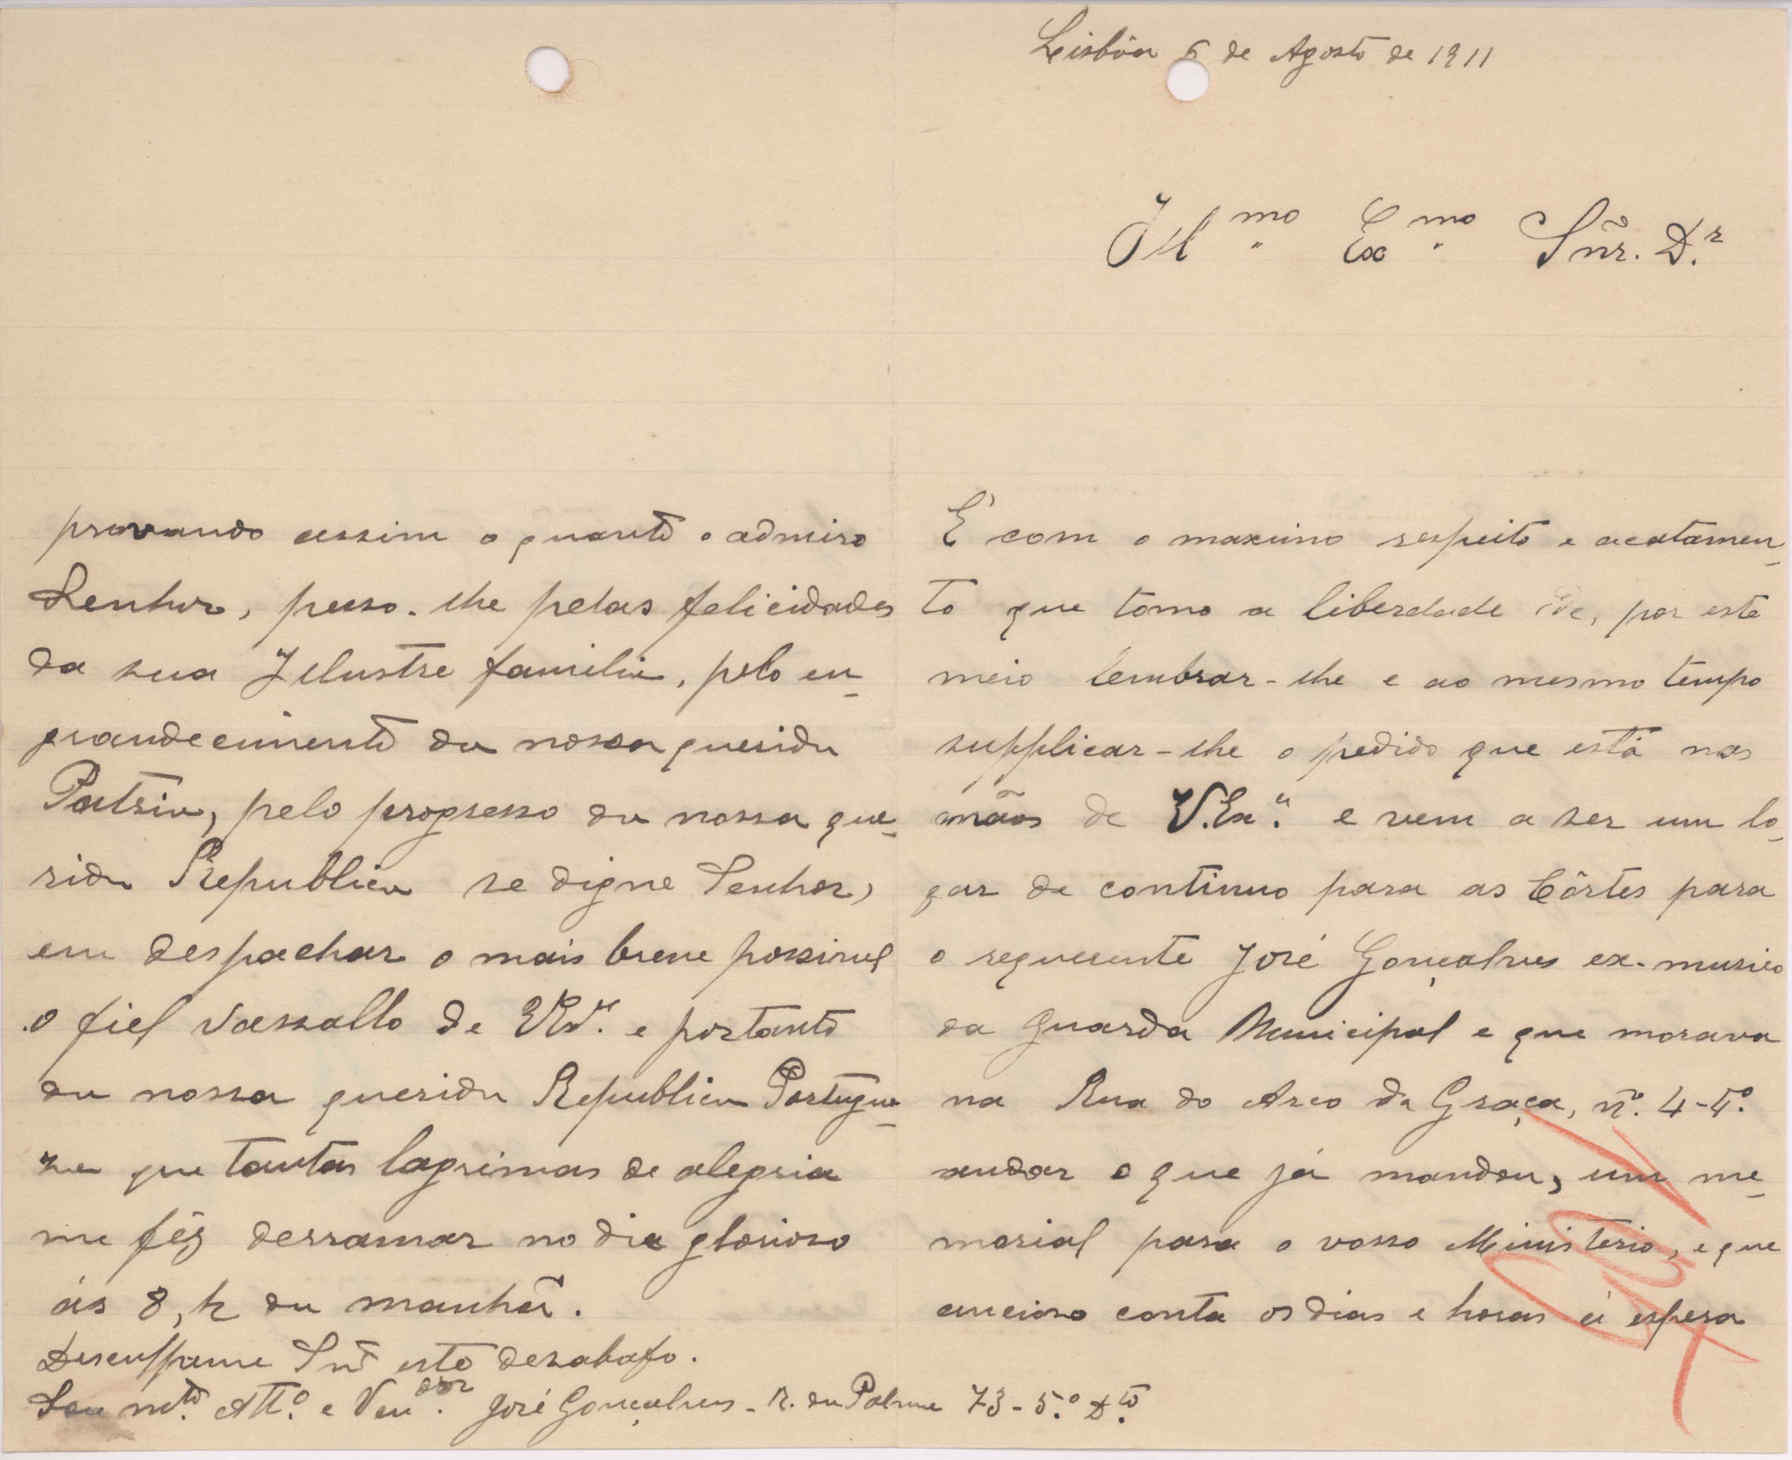 Lisbôa 6 de Agosto de 1911
Ill.mo Ex.mo Sñr. D.r
É com o maximo respeito e acatamen-
to que tomo a liberdade de, por este
meio lembrar-lhe e ao mesmo tempo
supplicar-lhe o pedido que está nas
mãos de V. Ex.a e vem a ser um lo-
gar de continuo para as Côrtes para
o requerente José Gonçalves ex-musico
da Guarda Municipal e que morava
na Rua do Arco da Graça, nº. 4-4º.
andar e que já mandou, um me-
morial para o vosso Ministerio, e que
ancioso conta os dias e horas á espera
provando assim o quanto o admiro
Senhor, pesso-lhe pelas felicidades
da sua Illustre familia, pelo en-
grandecimento da nossa querida
Patria, pelo progresso da nossa que-
rida Republica se digne Senhor,
em despachar o mais breve possivel
o fiel vassallo de e portanto
da nossa querida Republica Portugue-
za que tantas lagrimas de alegria
me fêz derramar no dia glorioso
ás 8, h da manhã.
Desculpame Snr este desabafo.
Seu mto. Atto. e Vendor. José Gonçalves - R. da Palma 73-5.º Dto.